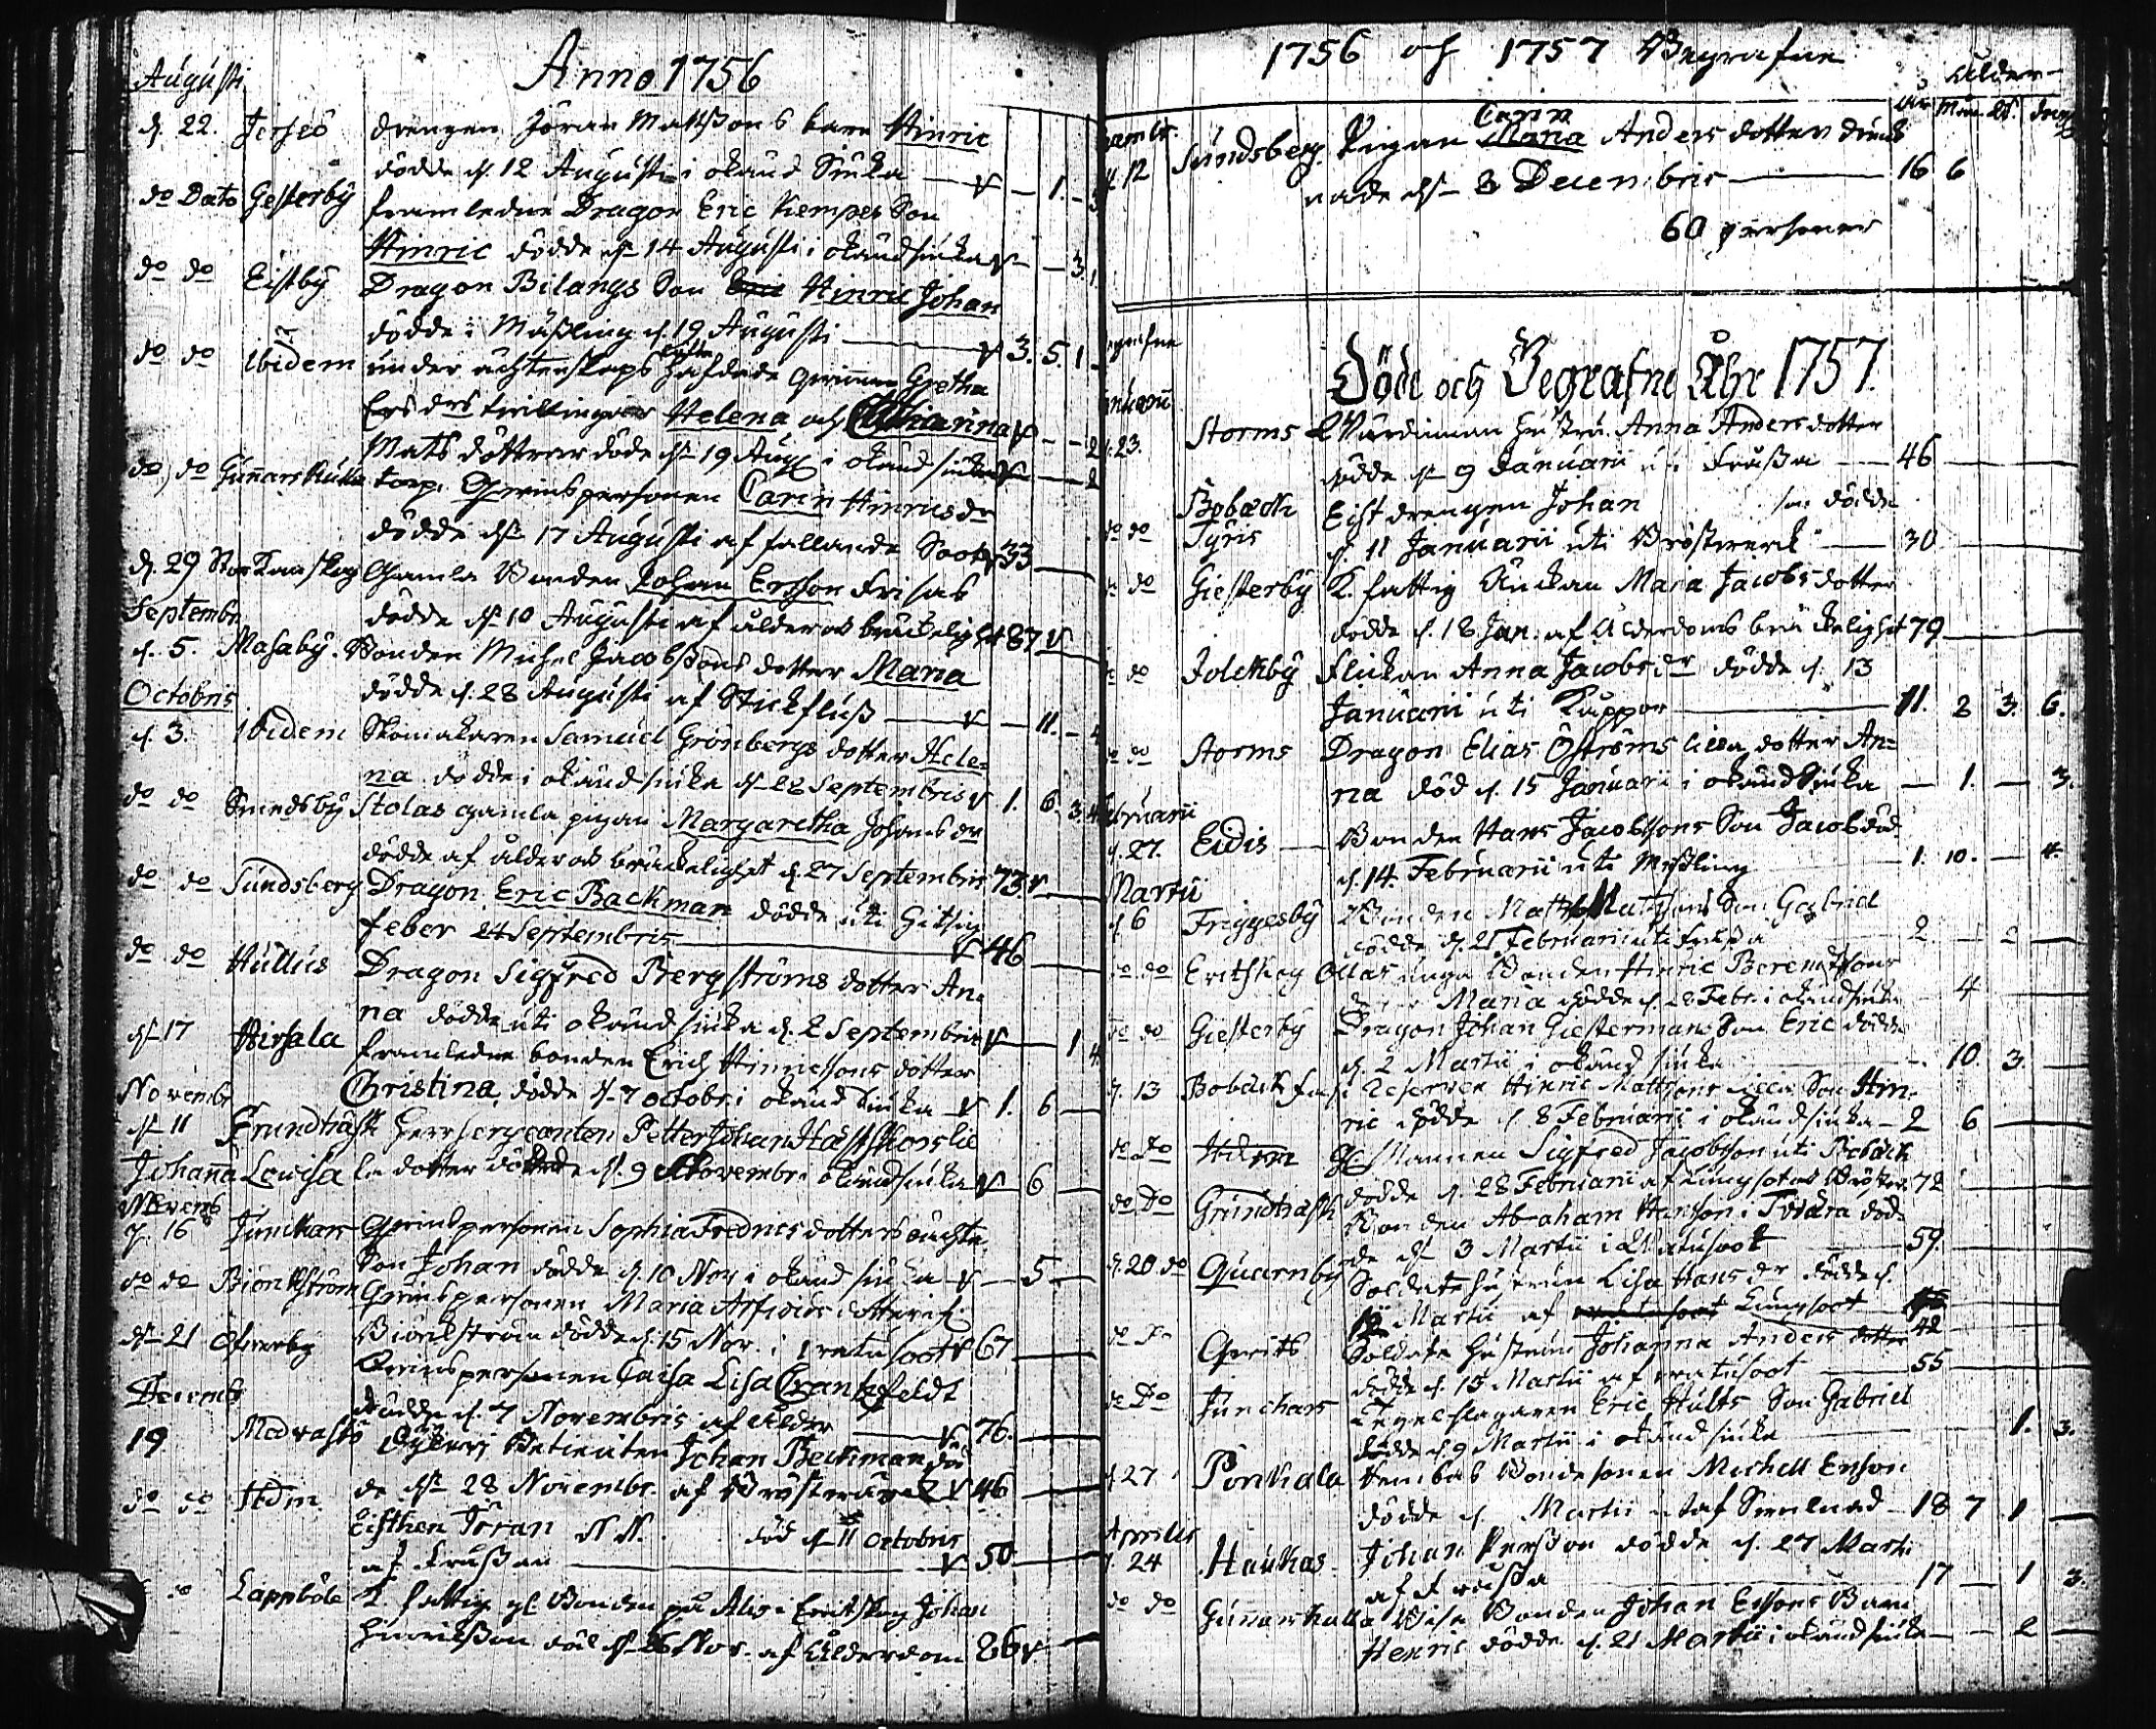 Augusti
Anno 1756
d. 22. Jerseö drengen Jöran Mattssons barn Hinric
dödde d. 12 Augusti i okänd Siuka v - 1. -
do Dato Gesterby framledne Dragon Eric Kempes Son
Hinric dödde d. 14 Augusti i okänd siuka v - - 3.
do do Eistby Dragon Bilangs Son Hinric Johan
dödde i Mässling d. 19 Augusti v 3. 5. 1
do do Ibidem under ächtenskaps häfdade qwinnan Gretha
Ers drs tvillingar Helena och Catharina v - - 2
Mats döttrar döde d. 19 Aug i okänd siuka v - - 2
do do Gunnarskulla torp. Qwinspersonen Carin Hinricsdr
dödde d. 17 Augusti af fallande Soot v 33
d. 29 Stor Kanskog Gamla Bonden Johan Ersson Frisas
dödde d. 10 Augusti af ålderds bräckelighet 87 v
Septembr.
d. 5. Masaby. Bonden Michel Jacobssons dotter Maria
dödde d. 28 Augusti af Stickfluss v - 11. -
Octobris
d. 3. Ibidem Skomakaren Samuel Grönbergs dotter Hele=
na dödde i okänd siuka d. 28 Septembris v 1. 6. 3. 4
do do Smedsby Stolas gamla pigan Margaretha Johansdr
dödde af ålderds bräckelighet d. 27 Septembris 73. v
do do Sundsberg Dragon Eric Backman dödde uti hitsig
feber 24 Septembris v 46
do do Hullus Dragon Sigfred Bergströms dotter An=
na dödde uti okänd siuka d. 2 Septembris v 1 4
d. 17 Hirsala framledne bonden Erich Hinricssons dotter
Christina, dödde d. 7 octobr. i okänd siuka v 1. 6
Novembr
d. 11 Grundträsk Herr sergeanten Petter Johan Hästskos lil
Johana Lovisa la dotter dödde d. 9 Novembr. okänd siuka v 6
Novemb
d. 16 Junkars Qwinspersonen Sophia Fredricsdotters oächta
Son Johan dödde d. 10 Nov i okänd siuka v - 5
do do Biörkström Qwinspersonen Maria Arfvids dotter i
Biörkström dödde d. 15 Nov. i vatusoot v 67
d. 21 Öfverby Qwinspersonen Caisa Lisa Crantzfeldt
dödde d. 7 Novembris af ålder v 76.
Decemb
19 Medvastö Betienten Johan Beckman död
de d. 28 Novembr. af Bröstvärck v 46
do do Idm Eisthen Jöran N N. död d. 11 octobris
af frussan v 50
do Lappböle K. fattig gl Bonden på Alis i Evitskog Johan
Hinricksson död d. 26 Nov. af Ålderdom 86 v
1756 och 1757 Begrafne
Ålder
år Mån. W. dag
Decembr.
d. 12 Sundsberg Pigan Carin Maria Anders dotter drunk
nade d. 3 Decembris 16 6
60 personer
Begrafne
Döde och Begrafne Åhr 1757.
Januarii
d. 23. Storms Värdinnan hustru Anna Andersdotter
dödde d. 9 Januarii uti Frussa 46
Bobäck
do do Tyris Eist drengen Johan dödde
d. 11 Januarii uti Bröstverck 30
do do Giesterby K. fattig Änckan Maria Jacobsdotter
dödde d. 18 Jan. af Ålderdoms bräckelighet 79
do do Jolckby flickan Anna Jacobsdr dödde d. 13
Januarii uti Kuppor 11. 2 3. 6.
do do Storms Dragon Elias Öströms lilla dotter An=
na död d. 15 Januarii i okänd Siuka 1. 3.
Februarii
d. 27. Eidis Bonden Hans Jacobssons Son Jacob död
d. 14. Februarii uti Mässling 1. 10. 4.
Martii
d. 6 Friggesby Bonden Matts Mattssons Son Gabriel
dödde d. 21 Februarii uti frussa 2. 2
do do Evitskog Ollas unga Bonden Hinric Berendtssons
dotter Maria dödde d. 28 Febr. i okänd siuka 4
do do Giesterby Dragon Johan Giestermans Son Eric dödde
d. 2 Martii i okänd siuka 10. 3.
d. 13 Bobäck Reserven Hinric Mattssons lilla Son Hin=
ric dödde d. 8 Februarii i okänd siuka 2 6
do Do Idem Gl Mannen Sigfred Jacobsson uti Bobäck
dödde d. 28 Februarii af Lungsot Bröstv. 72
do Do Grundträsk Bonden Abraham Hansson i Tvidera död=
de d. 3 Martii i Vatusoot 59.
d. 20 do Quarnby Soldatehustrun Lisa Hansdr dödde d.
12 Martii af Lungsoot 42
do Do Gerits Soldate hustrun Johanna Anders dotter
dödde d. 15 Martii af vatusoot 55
do Do Junchars Tegelslagaren Eric Hults Son Gabriel
dödde d. 9 Martii i okänd siuka 1. 3.
d. 27 Porkkala Hembas Bondesonen Michell Ersson
dödde d. Martii 18 7 1
Aprilis
d. 24 Haukas Johan Persson dödde d. 27 Marti
af frussa 17 1 3.
do do Gunnarskulla Wisa Bonden Johan Ersons Barn
Henric dödde d. 21 Martii i okänd siuka 2